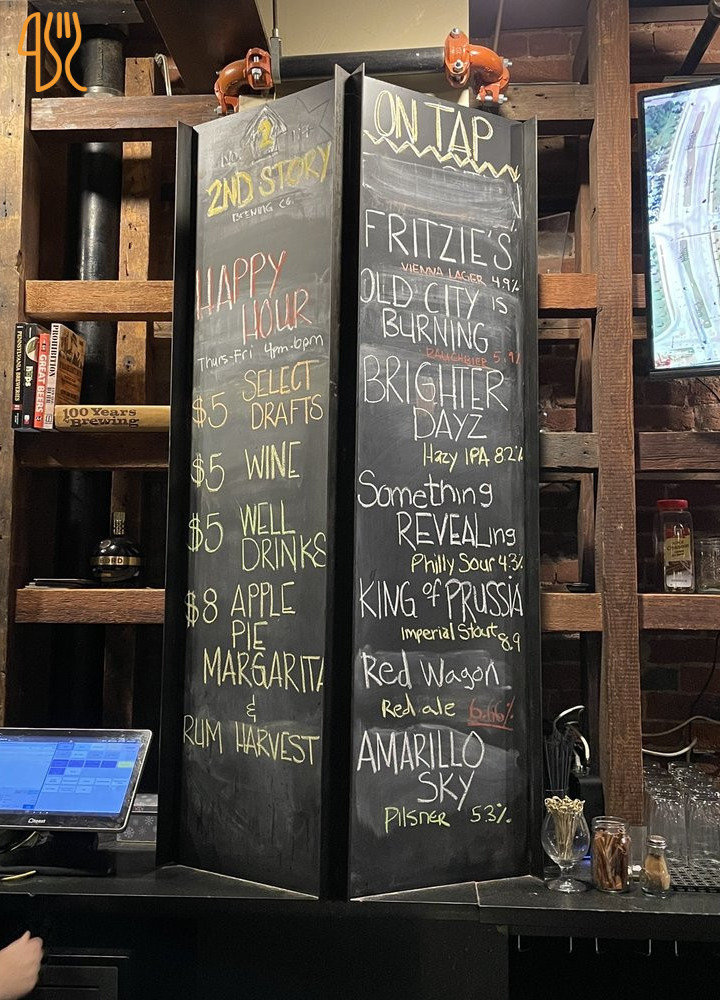 2
2ND STORY
BREWING CO.
HAPPY
HOUR
Thurs-Fri 4pm-6pm
$5 SELECT
DRAFTS
$5 WINE
$5 WELL
DRINKS
$8 APPLE
PIE
MARGARITA
&
RUM HARVEST
ON TAP
FRITZIE'S
VIENNA LAGER 4.9%
OLD CITY IS
BURNING
RAUCHBIER 5.9%
BRIGHTER
DAYZ
Hazy IPA 8.2%
Something
REVEALing
Philly Sour 4.3%
KING of PRUSSIA
Imperial Stout 8.9
Red Wagon
Red ale 6.66%
AMARILLO
SKY
Pilsner 5.3%
PENNSYLVANIA BREWERIES
Hops
GREAT BEERS
PROHIBITION
100 Years
Brewing